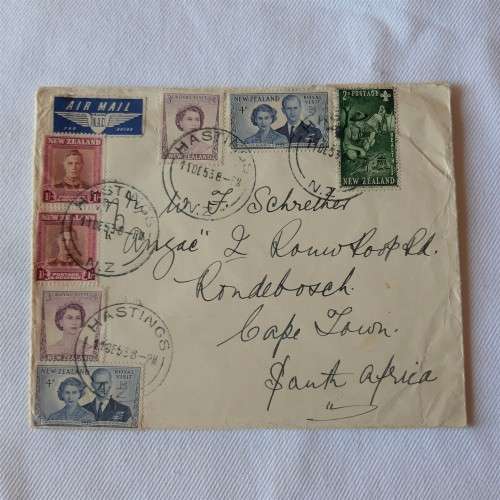 AIR MAIL
PAR AVION
3d ROYAL VISIT
NEW ZEALAND
NEW ZEALAND
ROYAL VISIT
4d
2d POSTAGE
NEW ZEALAND
HASTINGS
11 DE 53 8 - PM
N.Z.
NEW ZEALAND
HASTINGS
11 DE 53 8 - PM
N.Z.
NEW ZEALAND
1/- 1/-
HASTINGS
11 DE 53 8 - PM
NEW ZEALAND
ROYAL VISIT
4d
W. F. Schreiber
"Anzac" 2 Rouwkoop Rd.
Rondebosch.
Cape Town.
South Africa